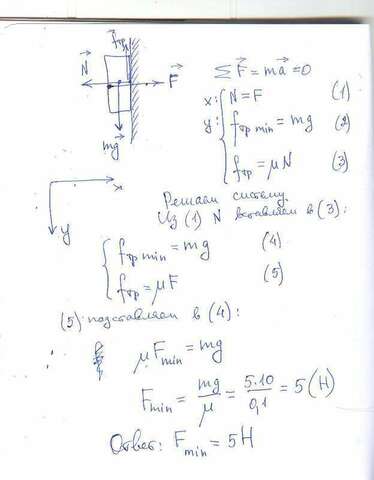 f⃗тр
N⃗
F⃗
mg⃗
x
y
∑F⃗ = ma⃗ = 0
x: N = F (1)
y: fтр min = mg (2)
fтр = μN (3)
Решаем систему.
Из (1) N вставляем в (3):
fтр min = mg (4)
fтр = μF (5)
(5) подставляем в (4):
μFmin = mg
Fmin = mg/μ = 5·10/0,1 = 5 (Н)
Ответ: Fmin = 5Н